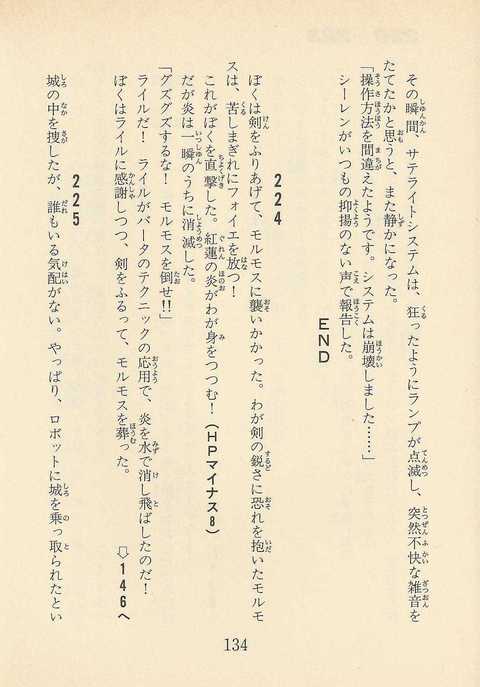 その瞬間、サテライトシステムは、狂ったようにランプが点滅し、突然不快な雑音を
たてたかと思うと、また静かになった。
「操作方法を間違えたようです。システムは崩壊しました……」
シーレンがいつもの抑揚のない声で報告した。
END
224
ぼくは剣をふりあげて、モルモスに襲いかかった。わが剣の鋭さに恐れを抱いたモルモ
スは、苦しまぎれにフォイエを放つ！
これがぼくを直撃した。紅蓮の炎がわが身をつつむ！（HPマイナス8）
だが炎は一瞬のうちに消滅した。
「グズグズするな！　モルモスを倒せ!!」
ライルだ！　ライルがバータのテクニックの応用で、炎を水で消し飛ばしたのだ！
ぼくはライルに感謝しつつ、剣をふるって、モルモスを葬った。
⇨146へ
225
城の中を捜したが、誰もいる気配がない。やっぱり、ロボットに城を乗っ取られたとい
134